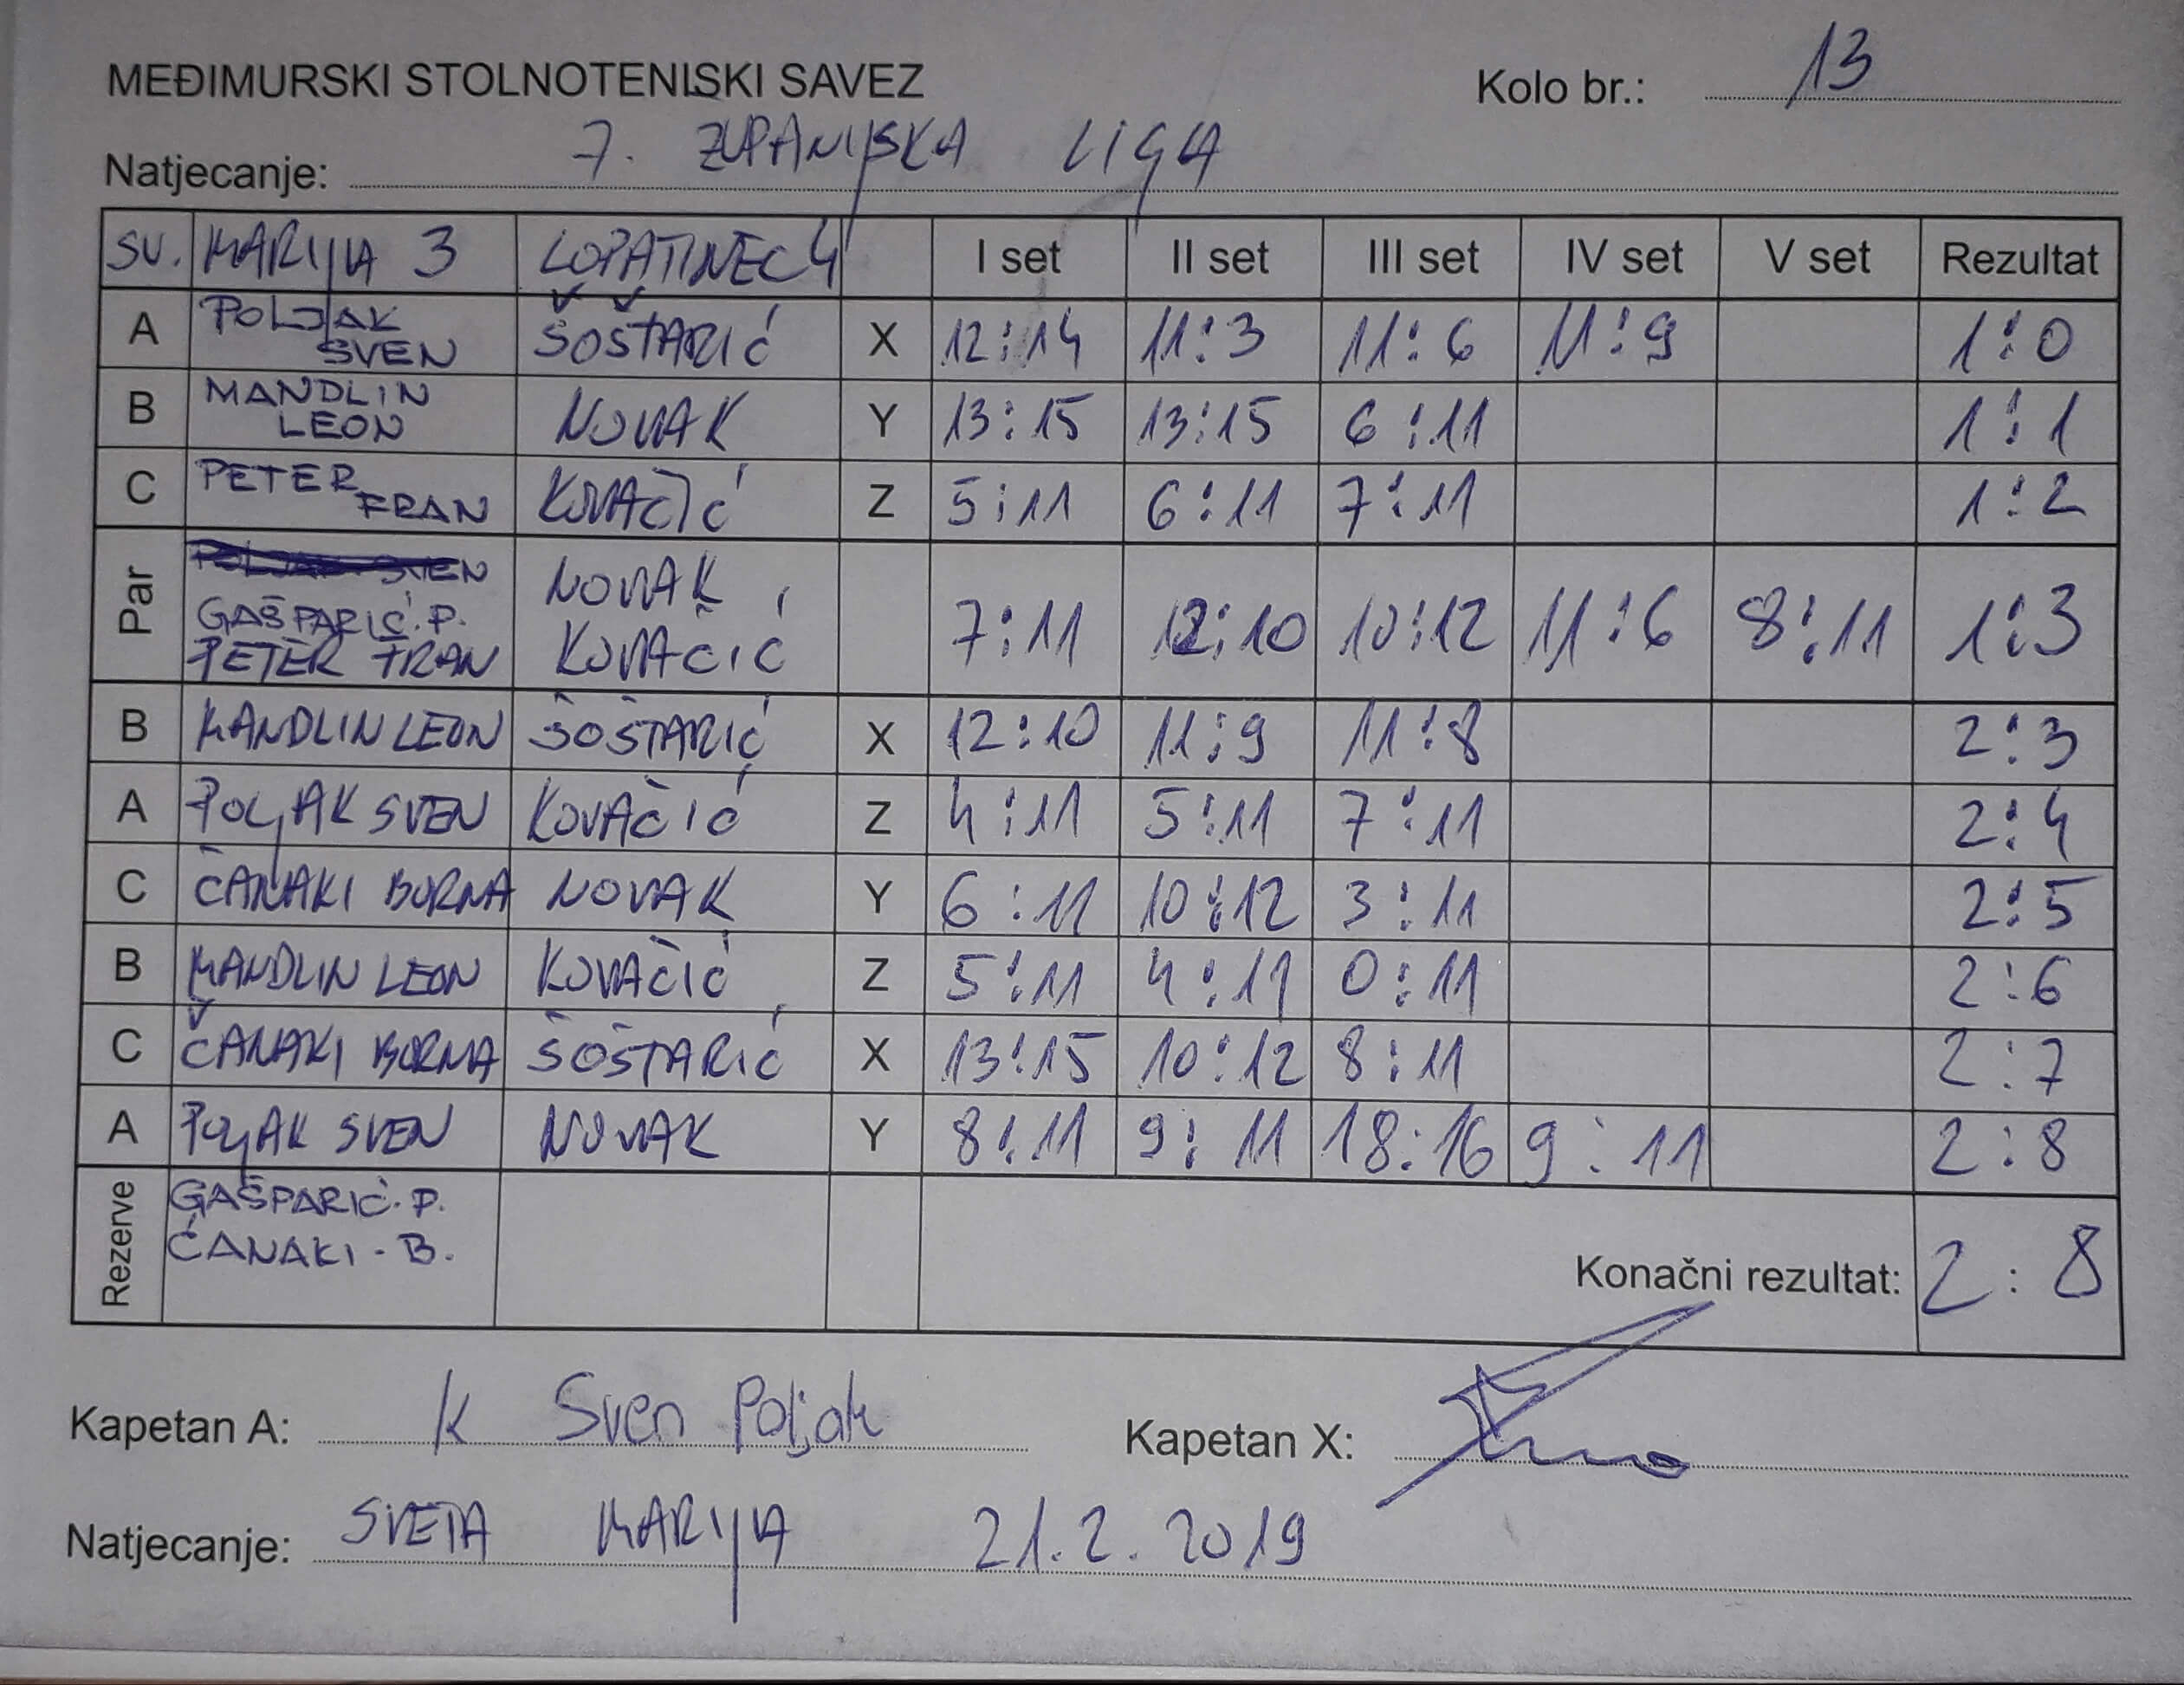 MEĐIMURSKI STOLNOTENISKI SAVEZ Kolo br.: 13
Natjecanje: 7. ŽUPANIJSKA LIGA
SV. MARIJA 3 LOPATINEC 4 I set II set III set IV set V set Rezultat
A POLJAK SVEN ŠOŠTARIĆ X 12:14 11:3 11:6 11:9 1:0
B MANDLIN LEON NOVAK Y 13:15 13:15 6:11 1:1
C PETER FRAN KOVAČIĆ Z 5:11 6:11 7:11 1:2
Par POLJAK SVEN NOVAK
GAŠPARIĆ.P. 7:11 12:10 10:12 11:6 8:11 1:3
PETER FRAN KOVAČIĆ
B MANDLIN LEON ŠOŠTARIĆ X 12:10 11:9 11:8 2:3
A POLJAK SVEN KOVAČIĆ Z 4:11 5:11 7:11 2:4
C ČANAKI BORNA NOVAK Y 6:11 10:12 3:11 2:5
B MANDLIN LEON KOVAČIĆ Z 5:11 4:11 0:11 2:6
C ČANAKI BORNA ŠOŠTARIĆ X 13:15 10:12 8:11 2:7
A POLJAK SVEN NOVAK Y 8:11 9:11 18:16 9:11 2:8
Rezerve GAŠPARIĆ.P.
ČANAKI-B.
Konačni rezultat: 2:8
Kapetan A: K Sven Poljak Kapetan X:
Natjecanje: SVETA MARIJA 21.2.2019